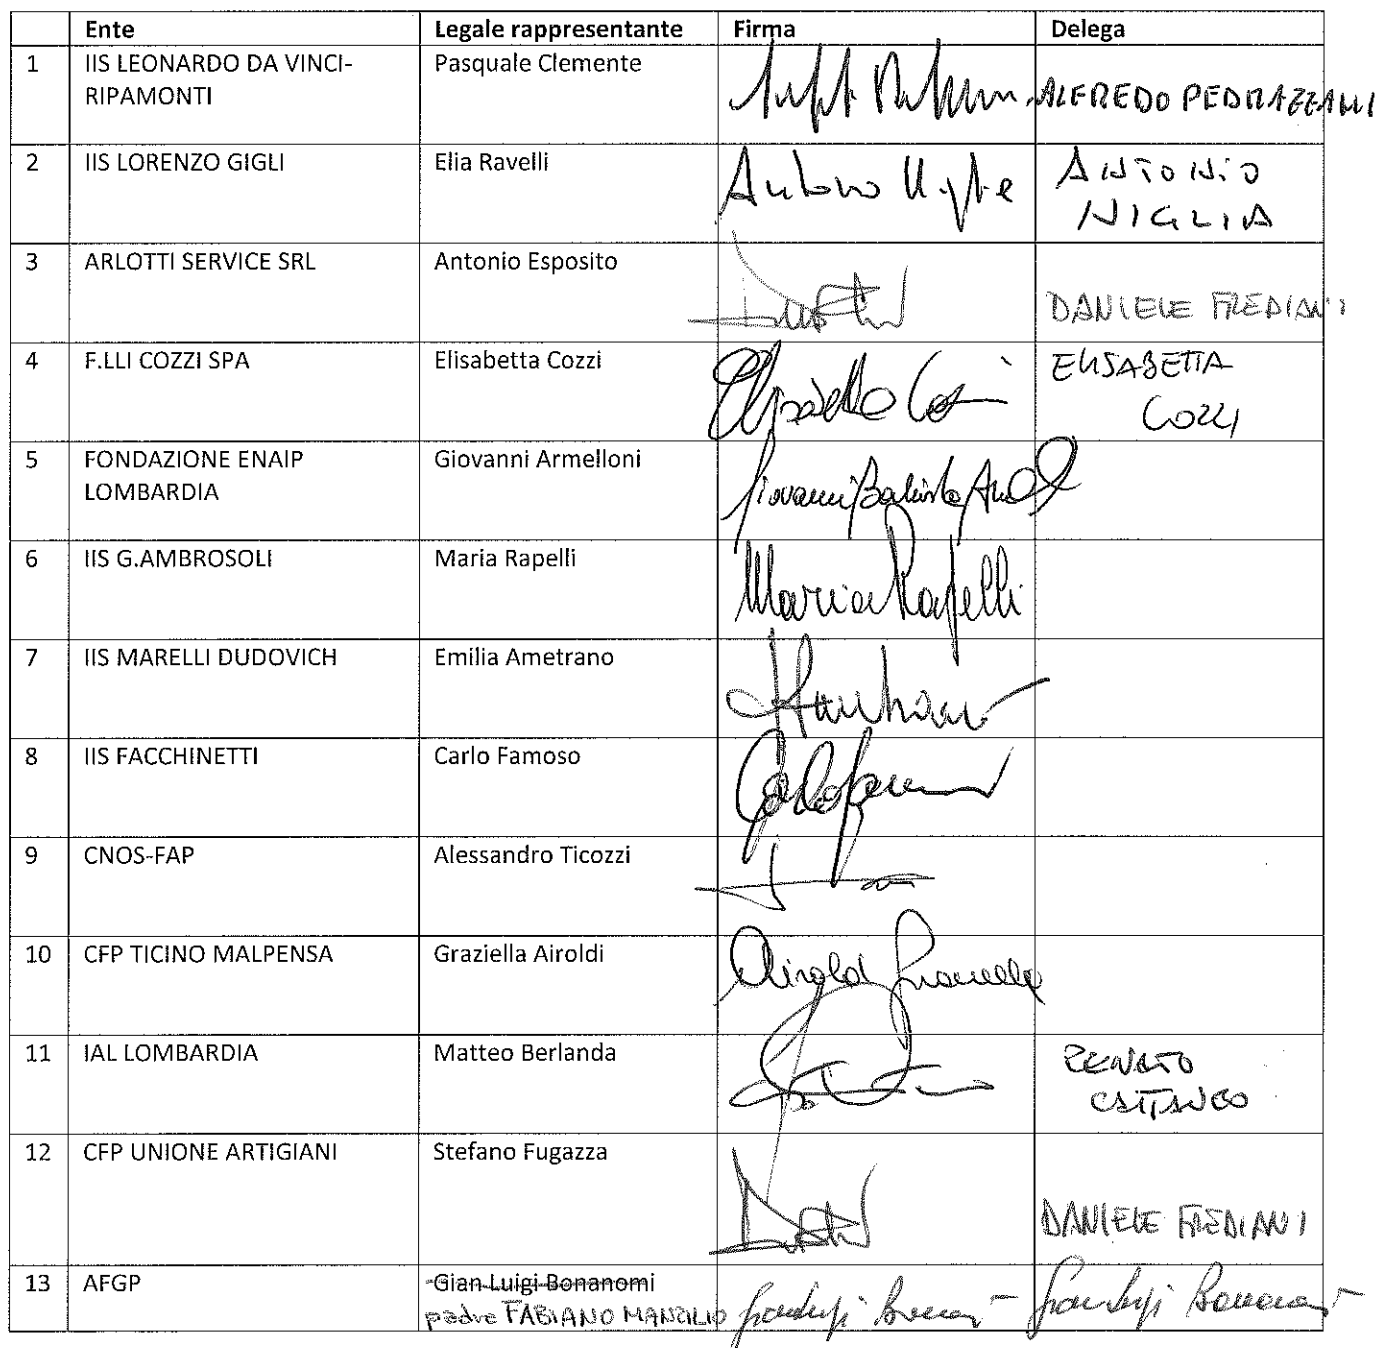 Ente Legale rappresentante Firma Delega
1 IIS LEONARDO DA VINCI- Pasquale Clemente ALFREDO PEDRAZZANI
RIPAMONTI
2 IIS LORENZO GIGLI Elia Ravelli Antonio ANTONIO
NIGLIA
3 ARLOTTI SERVICE SRL Antonio Esposito DANIELE FREDIANI
4 F.LLI COZZI SPA Elisabetta Cozzi Elisabetta Cozzi ELISABETTA
COZZI
5 FONDAZIONE ENAIP Giovanni Armelloni Giovanni Battista
LOMBARDIA
6 IIS G.AMBROSOLI Maria Rapelli Maria Rapelli
7 IIS MARELLI DUDOVICH Emilia Ametrano
8 IIS FACCHINETTI Carlo Famoso Carlo Famoso
9 CNOS-FAP Alessandro Ticozzi
10 CFP TICINO MALPENSA Graziella Airoldi Airoldi Graziella
11 IAL LOMBARDIA Matteo Berlanda RENATO
CATTANEO
12 CFP UNIONE ARTIGIANI Stefano Fugazza DANIELE FREDIANI
13 AFGP Gian Luigi Bonanomi
padre FABIANO Gianluigi Bonanomi Gian Luigi Bonanomi